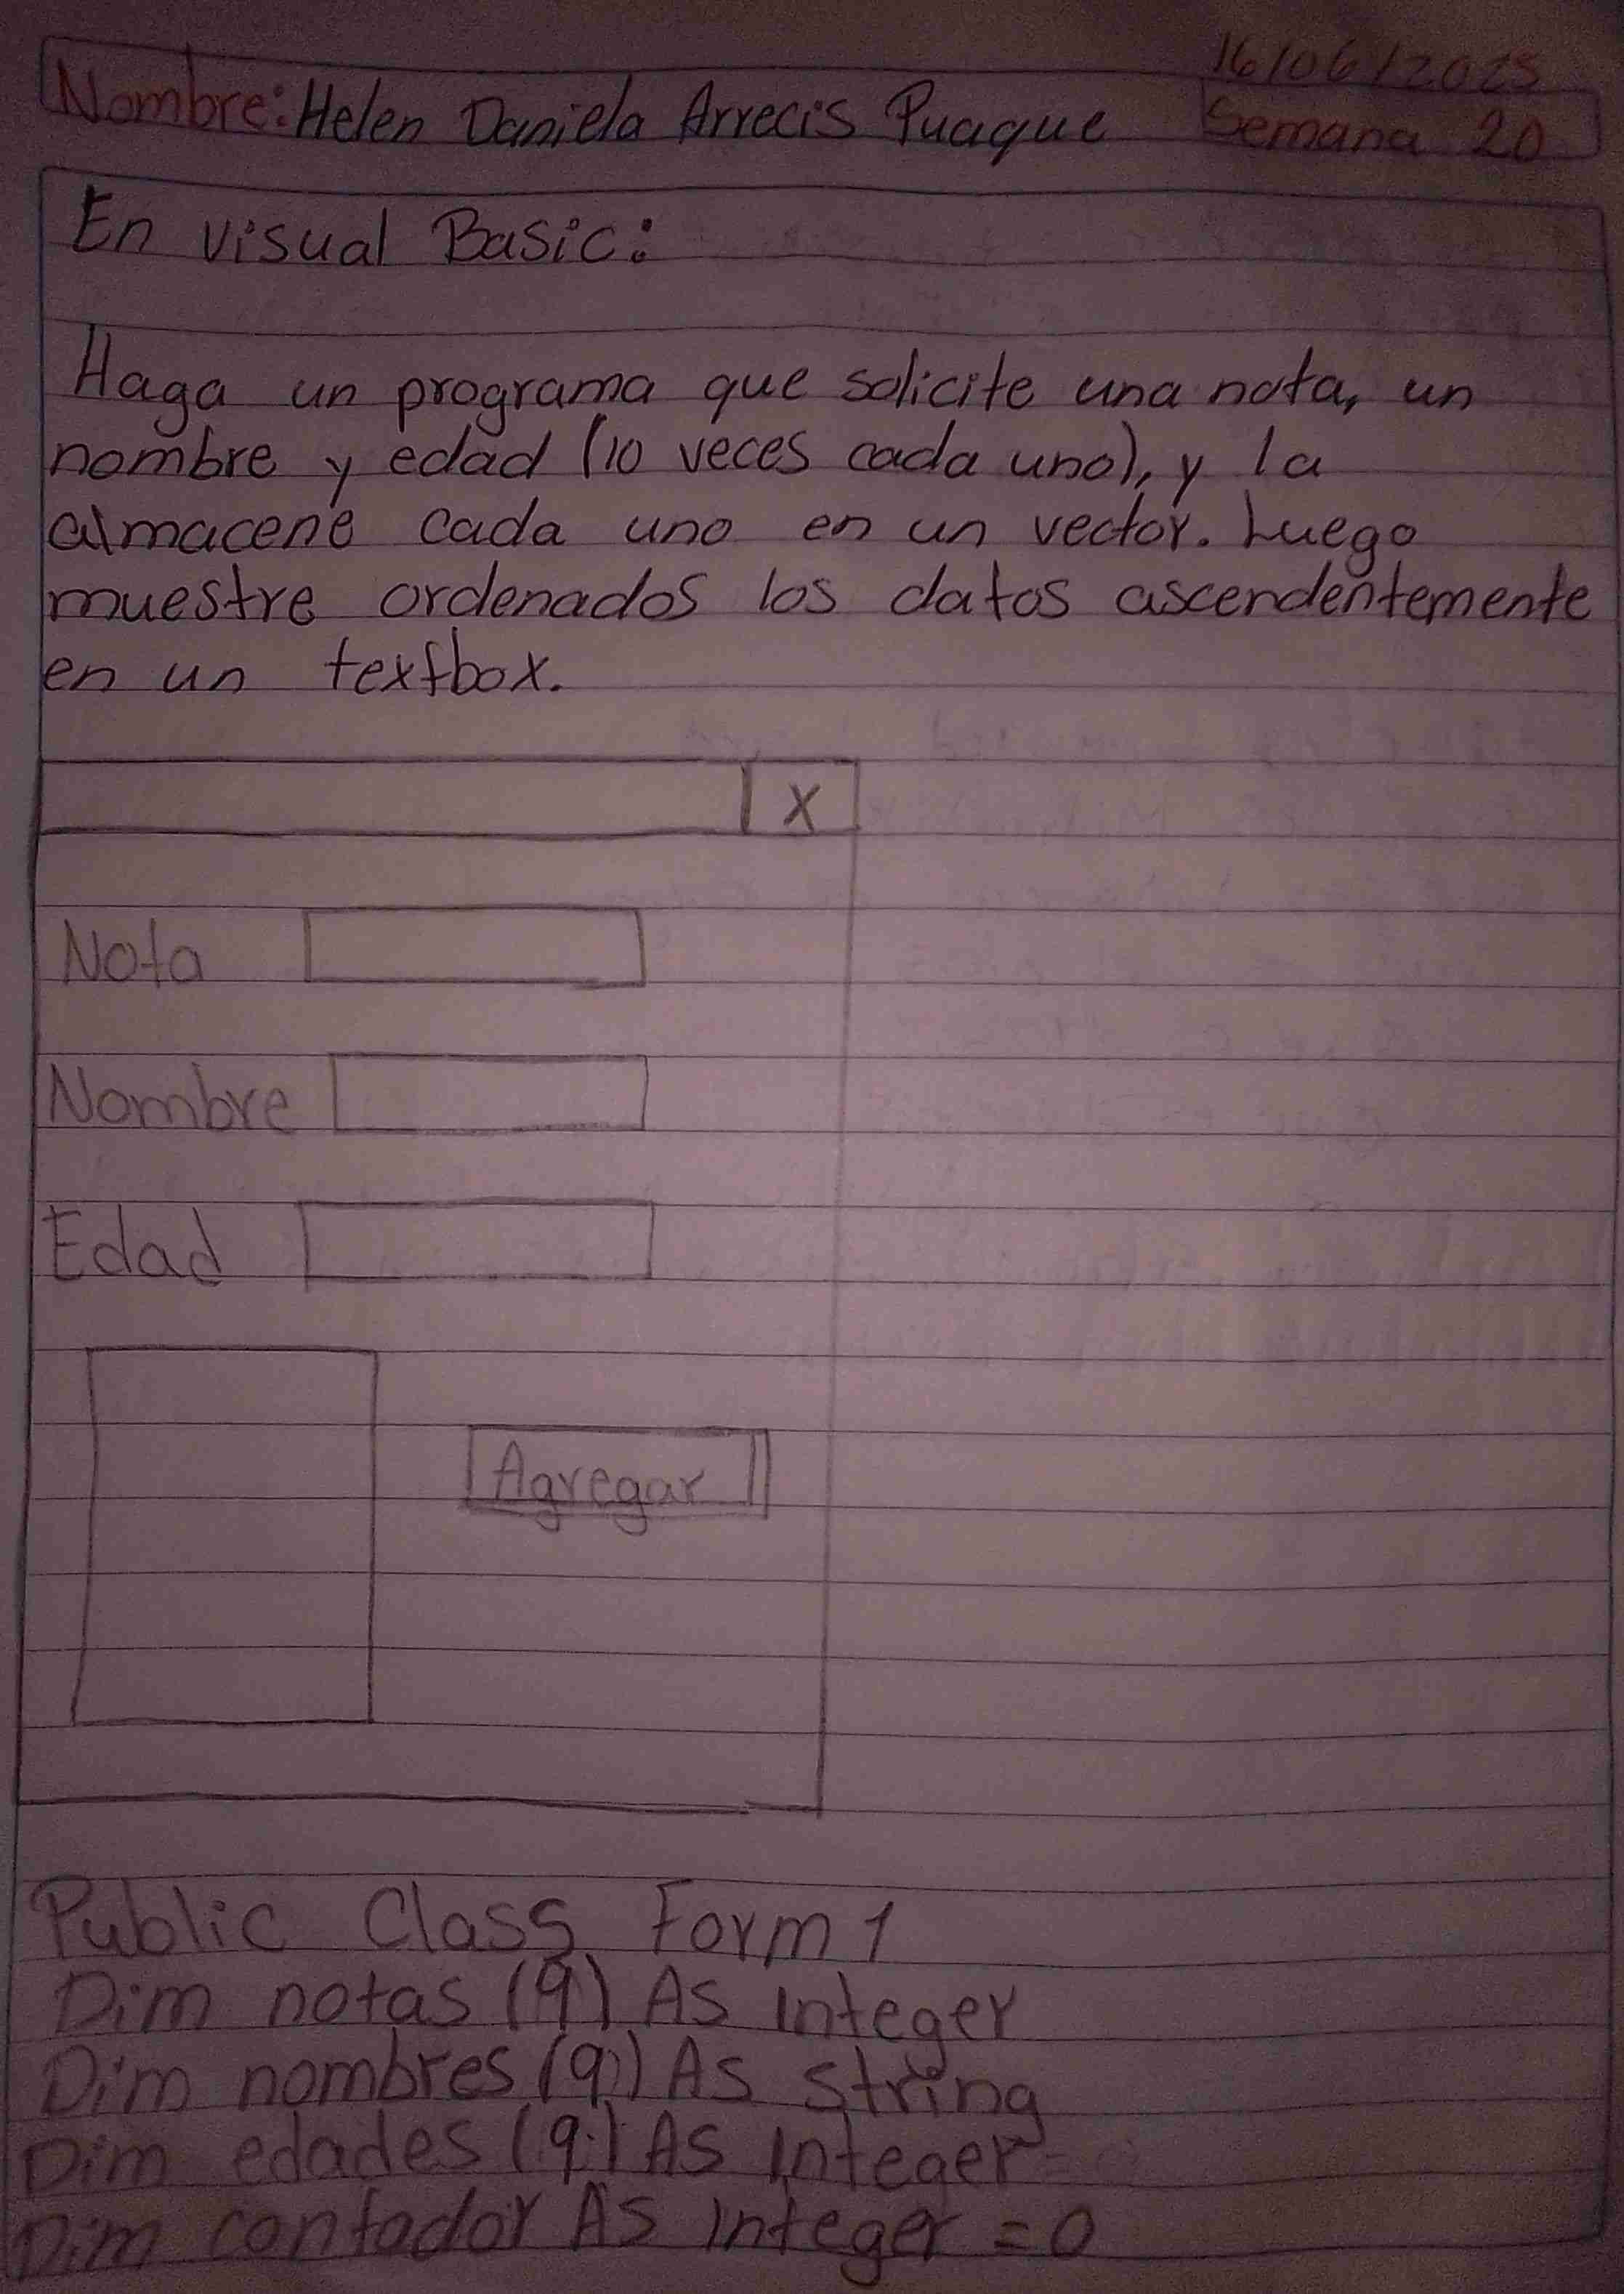 16/06/2025
Nombre: Helen Daniela Arrecis Puaque
Semana 20
En visual Basic:
Haga un programa que solicite una nota, un
nombre y edad (10 veces cada uno), y la
almacene cada uno en un vector. Luego
muestre ordenados los datos ascendentemente
en un textbox.
X
Nota
Nombre
Edad
Agregar
Public Class Form 1
Dim notas (9) As Integer
Dim nombres (9) As string
Dim edades (9) As Integer
Dim contador As Integer = 0